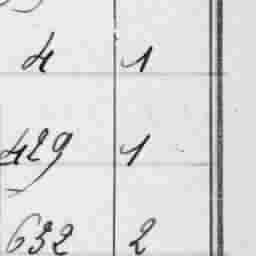 4 1
429 1
632 2